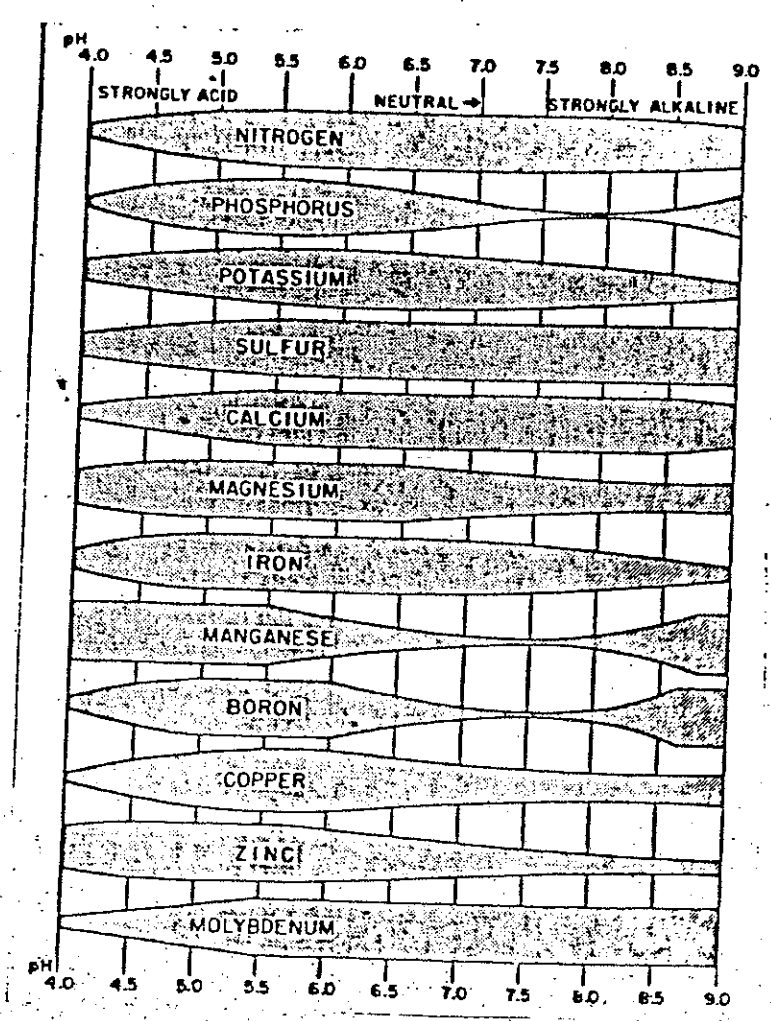 pH
4.0 4.5 5.0 5.5 6.0 6.5 7.0 7.5 8.0 8.5 9.0
STRONGLY ACID NEUTRAL → STRONGLY ALKALINE
NITROGEN
PHOSPHORUS
POTASSIUM
SULFUR
CALCIUM
MAGNESIUM
IRON
MANGANESE
BORON
COPPER
ZINC
MOLYBDENUM
pH
4.0 4.5 5.0 5.5 6.0 6.5 7.0 7.5 8.0 8.5 9.0